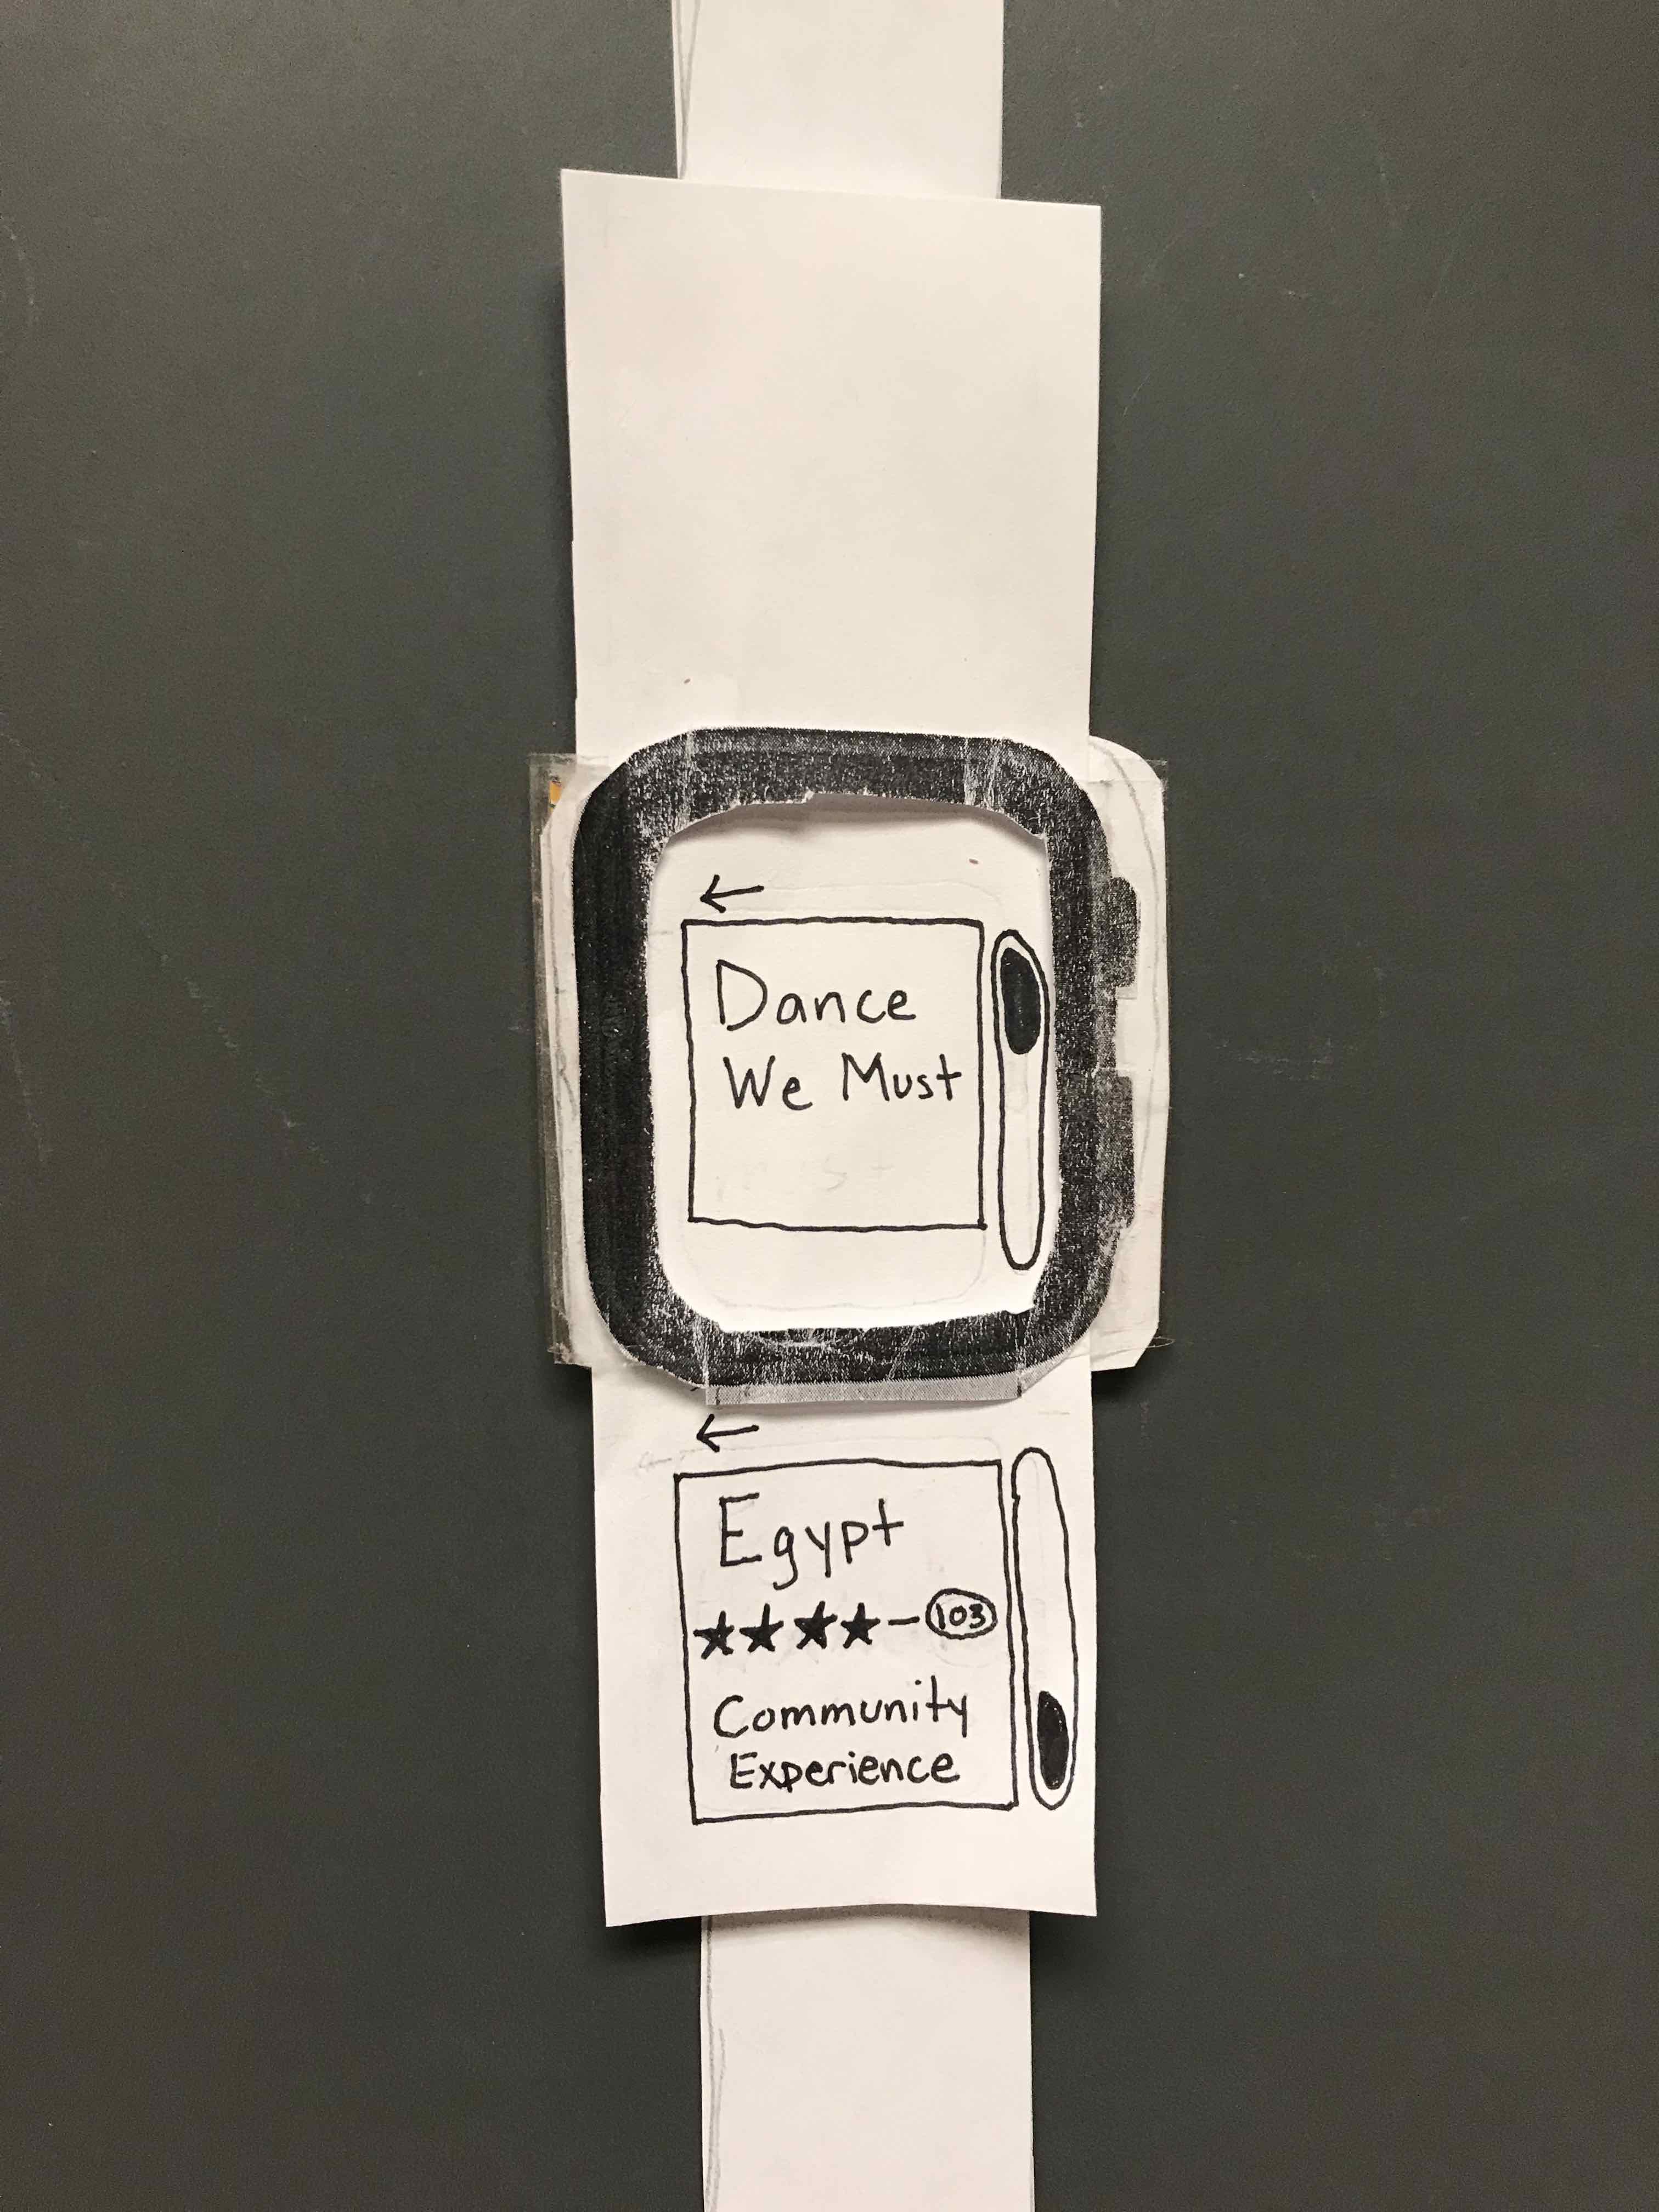 ←
Dance
We Must
←
Egypt
★★★★— 103
Community
Experience